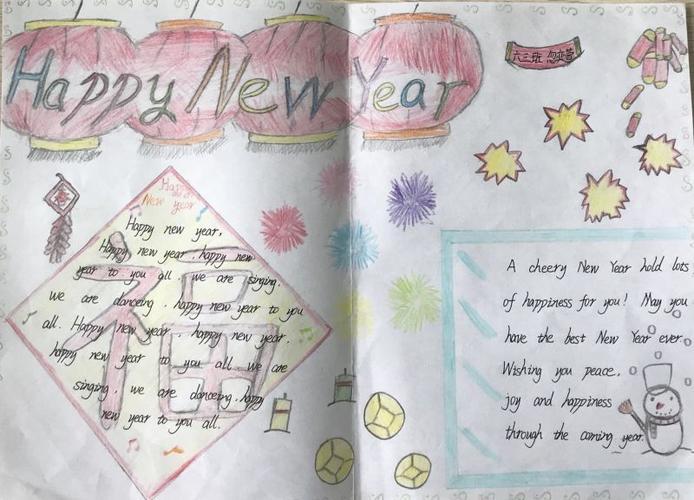 Happy New Year
六三班
Happy
New year
Happy new year,
Happy new year, happy new
year to you all. we are singing.
we are danceing. happy new year to you
all. Happy new year, happy new year,
happy new year to you all. we are
singing, we are danceing, happy
new year to you all.
福
A cheery New Year hold lots
of happiness for you! May you
have the best New Year ever.
Wishing you peace,
joy and happiness
through the coming year.